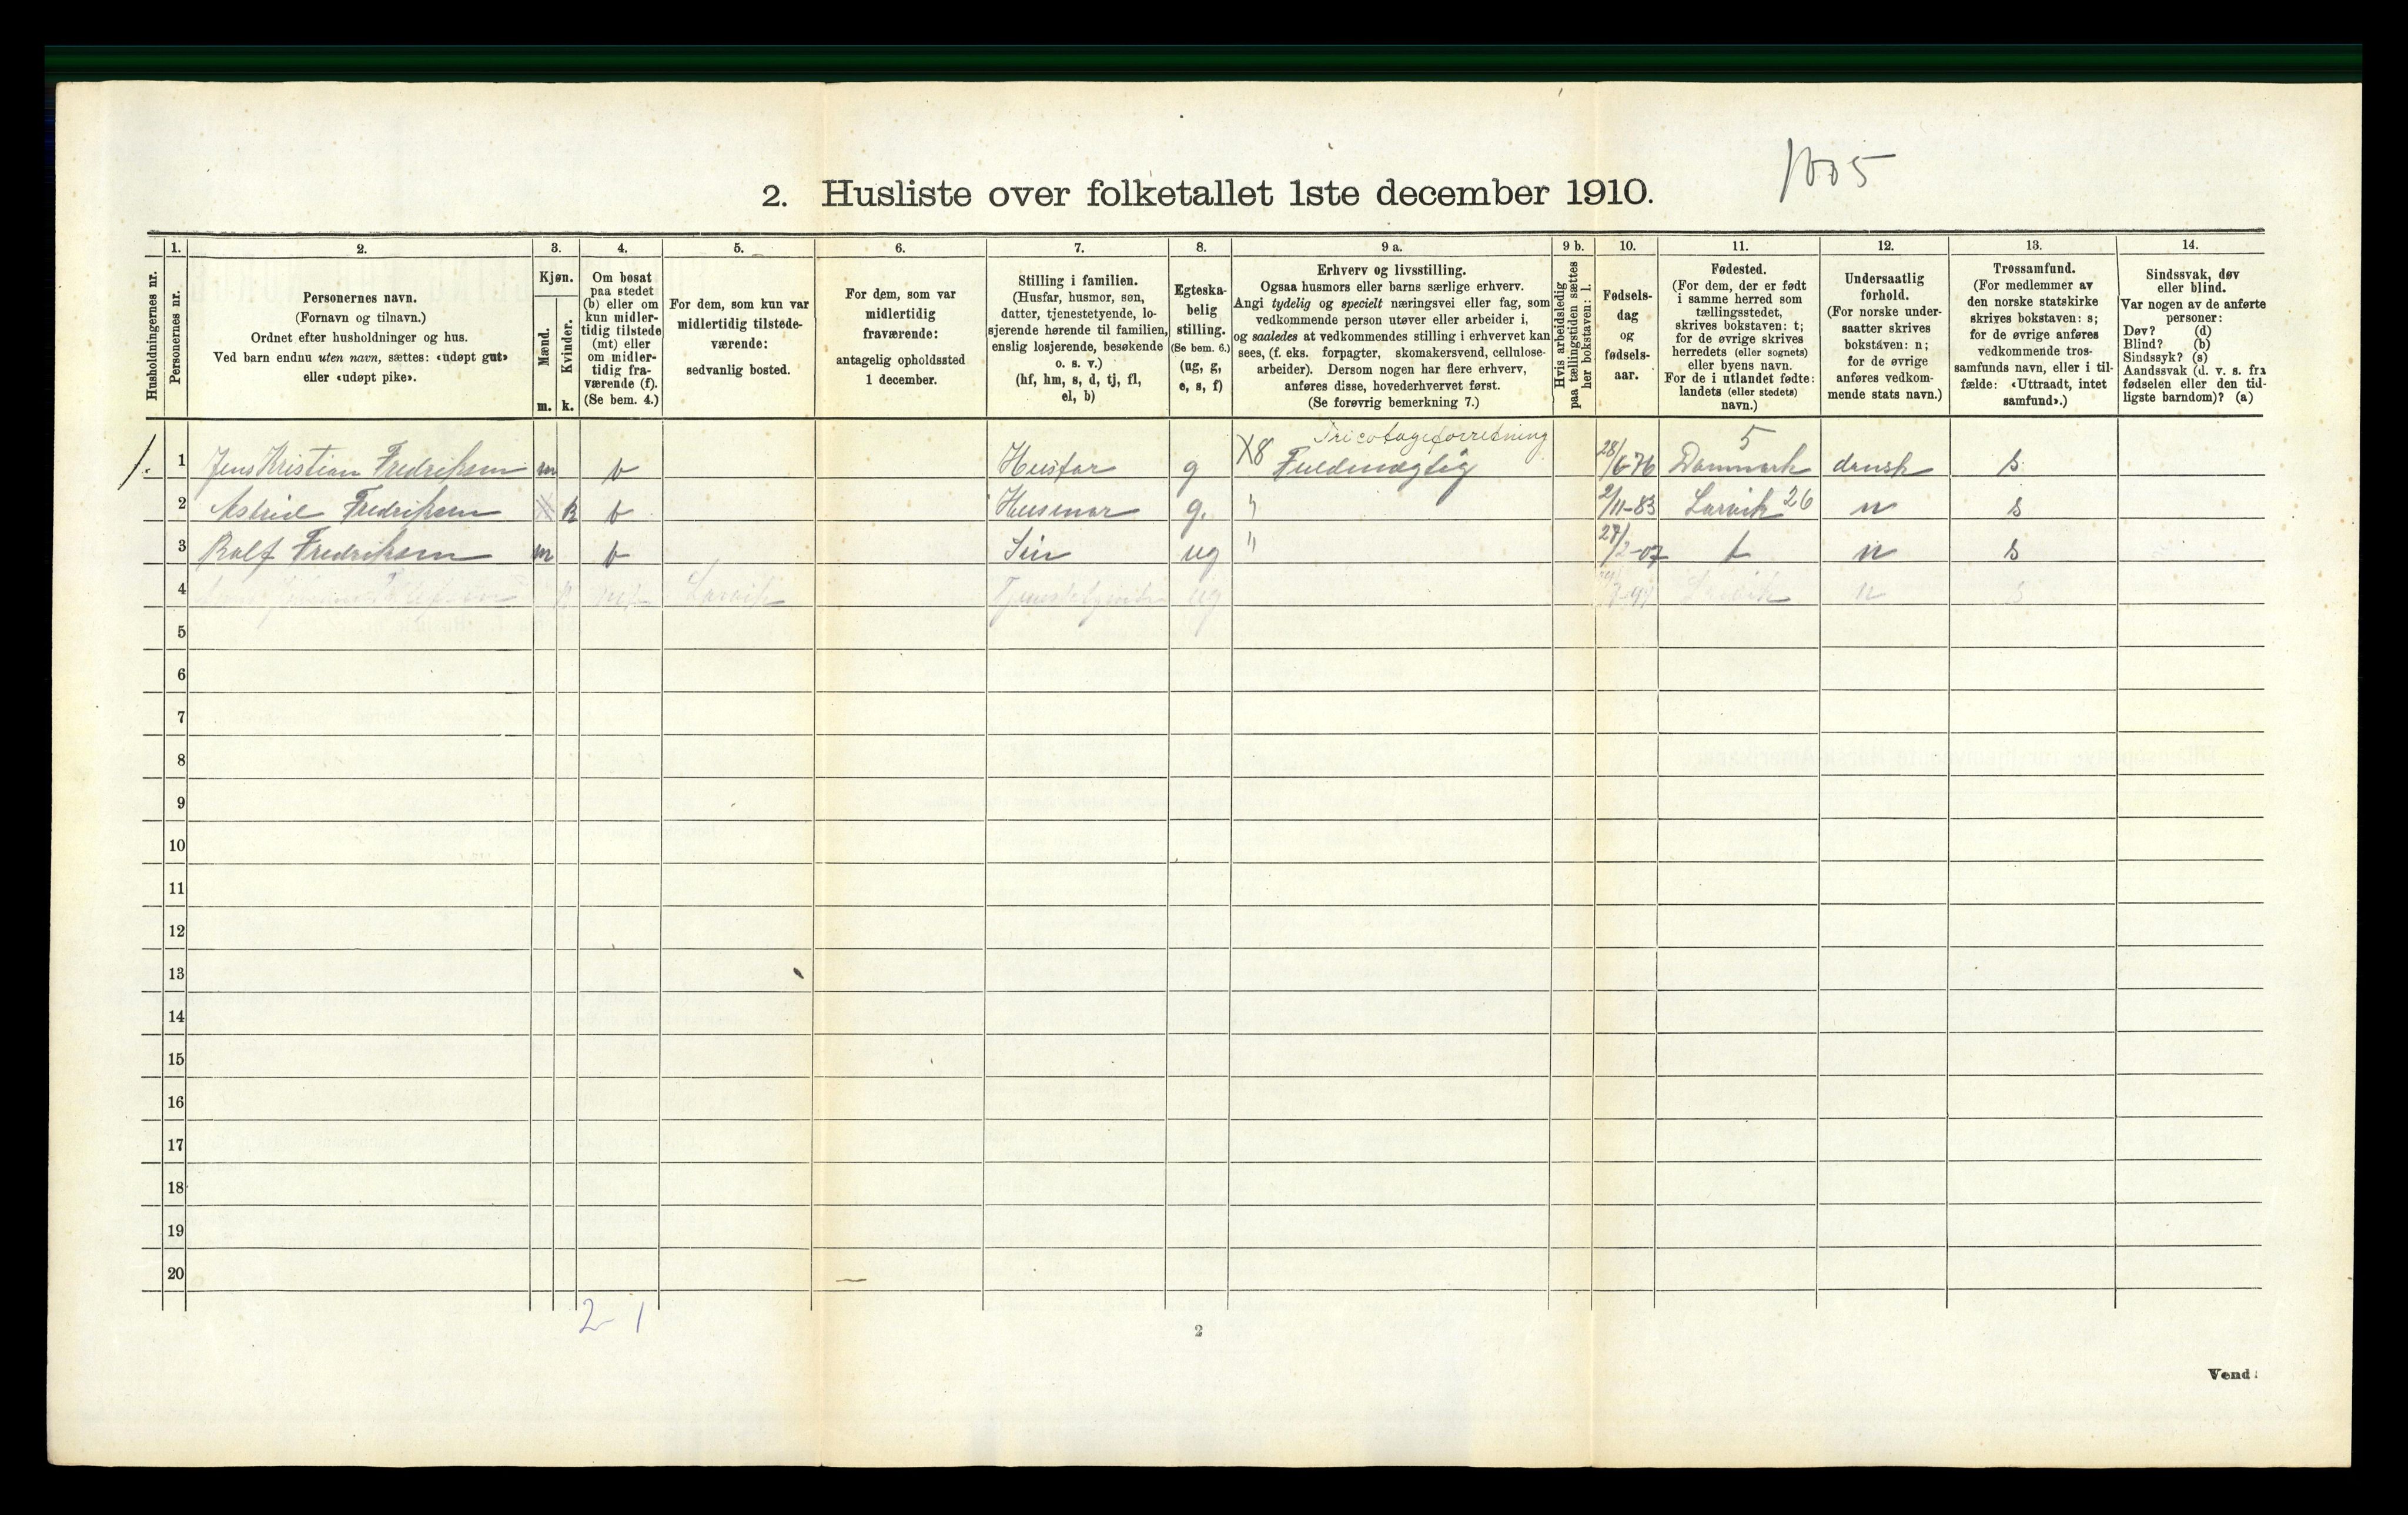 1005
2. Husliste over folketallet 1ste december 1910.
Husholdningernes nr.
1.
Personernes nr.
2.
Personernes navn.
(Fornavn og tilnavn.)
Ordnet efter husholdninger og hus.
Ved barn endnu uten navn, sættes: «udøpt gut»
eller «udøpt pike».
3.
Kjøn.
Mænd.
Kvinder.
m. k.
4.
Om bosat
paa stedet
(b) eller om
kun midler-
tidig tilstede
(mt) eller
om midler-
tidig fra-
værende (f).
(Se bem. 4.)
5.
For dem, som kun var
midlertidig tilstede-
værende:
sedvanlig bosted.
6.
For dem, som var
midlertidig
fraværende:
antagelig opholdssted
1 december.
7.
Stilling i familien.
(Husfar, husmor, søn,
datter, tjenestetyende, lo-
sjerende hørende til familien,
enslig losjerende, besøkende
o. s. v.)
(hf, hm, s, d, tj, fl,
el, b)
8.
Egteska-
belig
stilling.
(Se bem. 6.)
(ug, g,
e, s, f)
9 a.
Erhverv og livsstilling.
Ogsaa husmors eller barns særlige erhverv.
Angi tydelig og specielt næringsvei eller fag, som
vedkommende person utøver eller arbeider i,
og saaledes at vedkommendes stilling i erhvervet kan
sees, (f. eks. forpagter, skomakersvend, cellulose-
arbeider). Dersom nogen har flere erhverv,
anføres disse, hovederhvervet først.
(Se forøvrig bemerkning 7.)
9 b.
Hvis arbeidsledig
paa tællingstiden sættes
her bokstaven: l.
10.
Fødsels-
dag
og
fødsels-
aar.
11.
Fødested.
(For dem, der er født
i samme herred som
tællingsstedet,
skrives bokstaven: t;
for de øvrige skrives
herredets (eller sognets)
eller byens navn.
For de i utlandet fødte:
landets (eller stedets)
navn.)
12.
Undersaatlig
forhold.
(For norske under-
saatter skrives
bokstaven: n;
for de øvrige
anføres vedkom-
mende stats navn.)
13.
Trossamfund.
(For medlemmer av
den norske statskirke
skrives bokstaven: s;
for de øvrige anføres
vedkommende tros-
samfunds navn, eller i til-
fælde: «Uttraadt, intet
samfund».)
14.
Sindssvak, døv
eller blind.
Var nogen av de anførte
personer:
Døv? (d)
Blind? (b)
Sindssyk? (s)
Aandssvak (d. v. s. fra
fødselen eller den tid-
ligste barndom)? (a)
Tricotageforretning 5
1. 1 Jens Kristian Fredriksen m b Husfar g X8 Fuldmægtig 28/6-76 Danmark dansk s
2 Astrid Fredriksen k b Husmor g. " 2/11-83 Larvik 26 n s
3 Rolf Fredriksen m b Søn ug " 27/2-07 t n s
4 k mt Larvik ug Larvik n s
5
6
7
8
9
10
11
12
13
14
15
16
17
18
19
20
2 1
2
Vend!